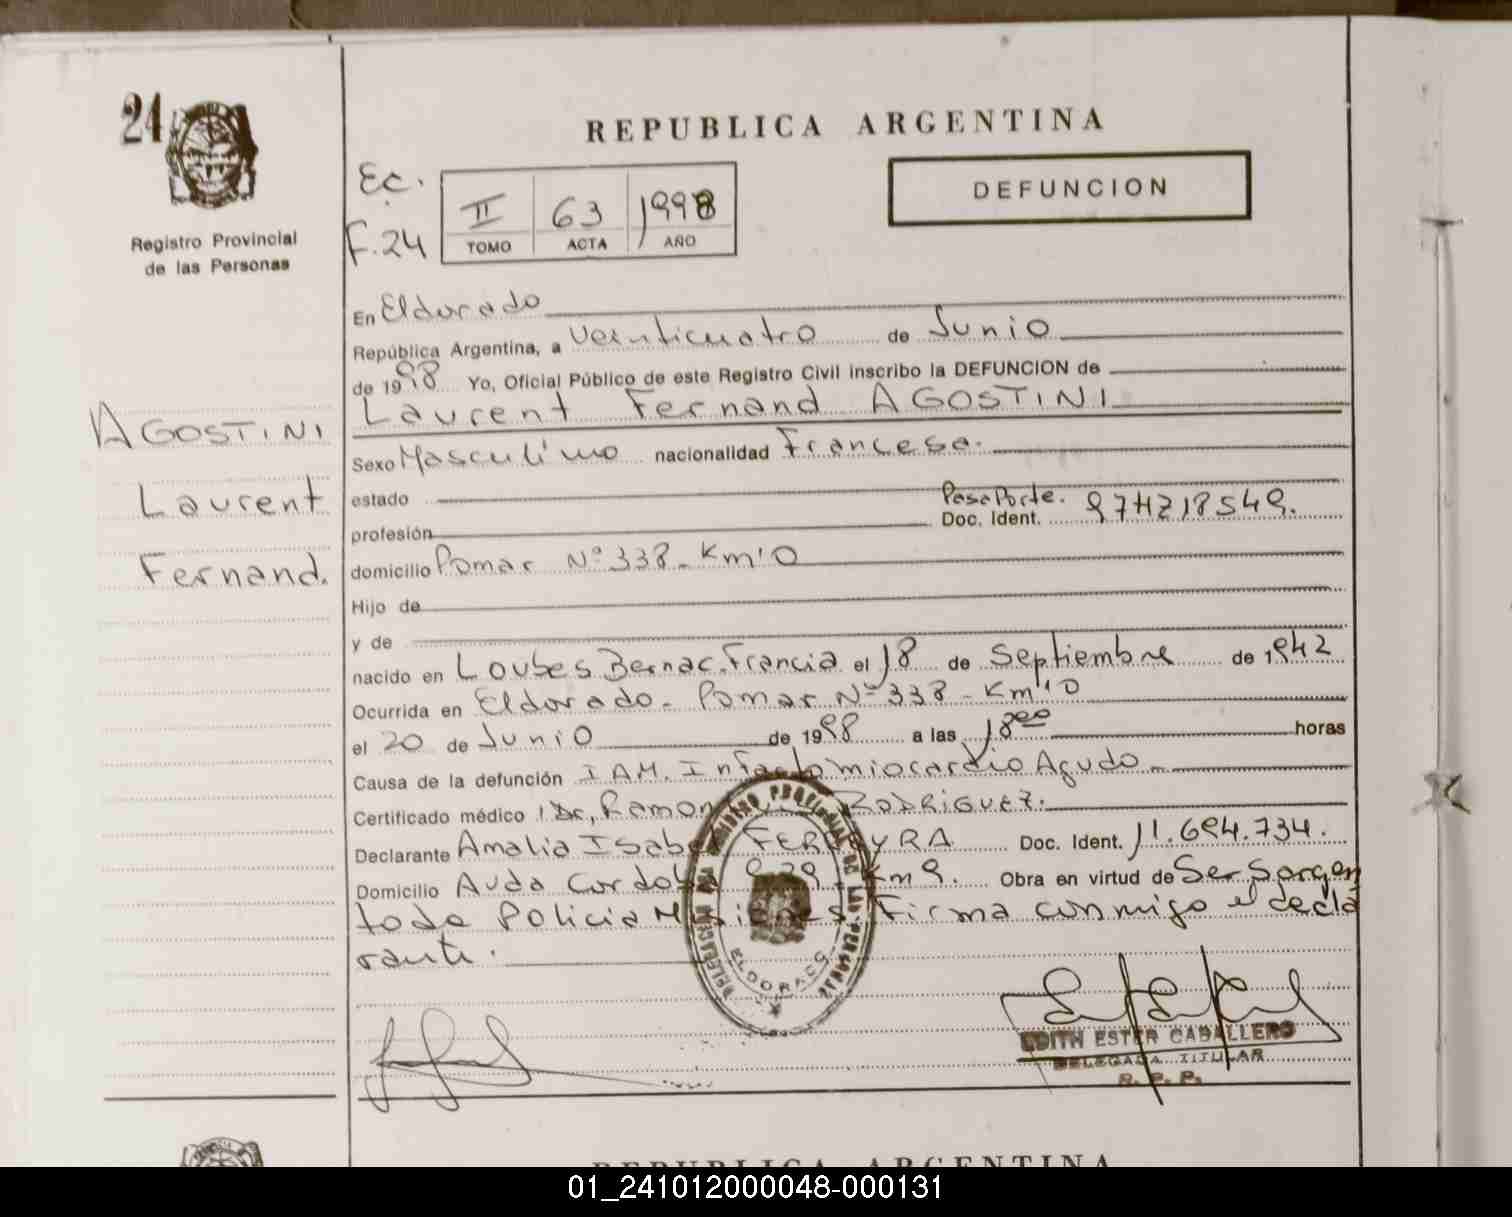 24
Registro Provincial
de las Personas
AGOSTINI
Laurent
Fernand.
REPUBLICA ARGENTINA
Ec.
F.24
II 63 1998
TOMO ACTA AÑO
DEFUNCION
En Eldorado
República Argentina, a veinticuatro de Junio
de 1998 Yo, Oficial Público de este Registro Civil inscribo la DEFUNCION de
Laurent Fernand AGOSTINI
Sexo Masculino nacionalidad Francesa.
estado
Pasaporte.
profesión Doc. Ident. 97HZ18549.
domicilio Pomar Nº 338 - Km 10
Hijo de
y de
nacido en Loubes Bernac. Francia el 18 de Septiembre de 1942
Ocurrida en Eldorado - Pomar Nº 338 - Km 10
el 20 de Junio de 1998 a las 18 00 horas
Causa de la defunción I AM. Infarto miocardio Agudo
Certificado médico Dr, Ramon RODRIGUEZ.
Declarante Amalia Isabel FERREYRA Doc. Ident. 11.694.734.
Domicilio Avda Cordoba Km 9. Obra en virtud de Ser Sargen
to de Policia Misiones Firma conmigo el decla
rante.
DELEGACION DEL REGISTRO PROVINCIAL DE LAS PERSONAS
ELDORADO
EDITH ESTER CABALLERO
DELEGADA TITULAR
R. P. P.
REPUBLICA ARGENTINA
01_241012000048-000131